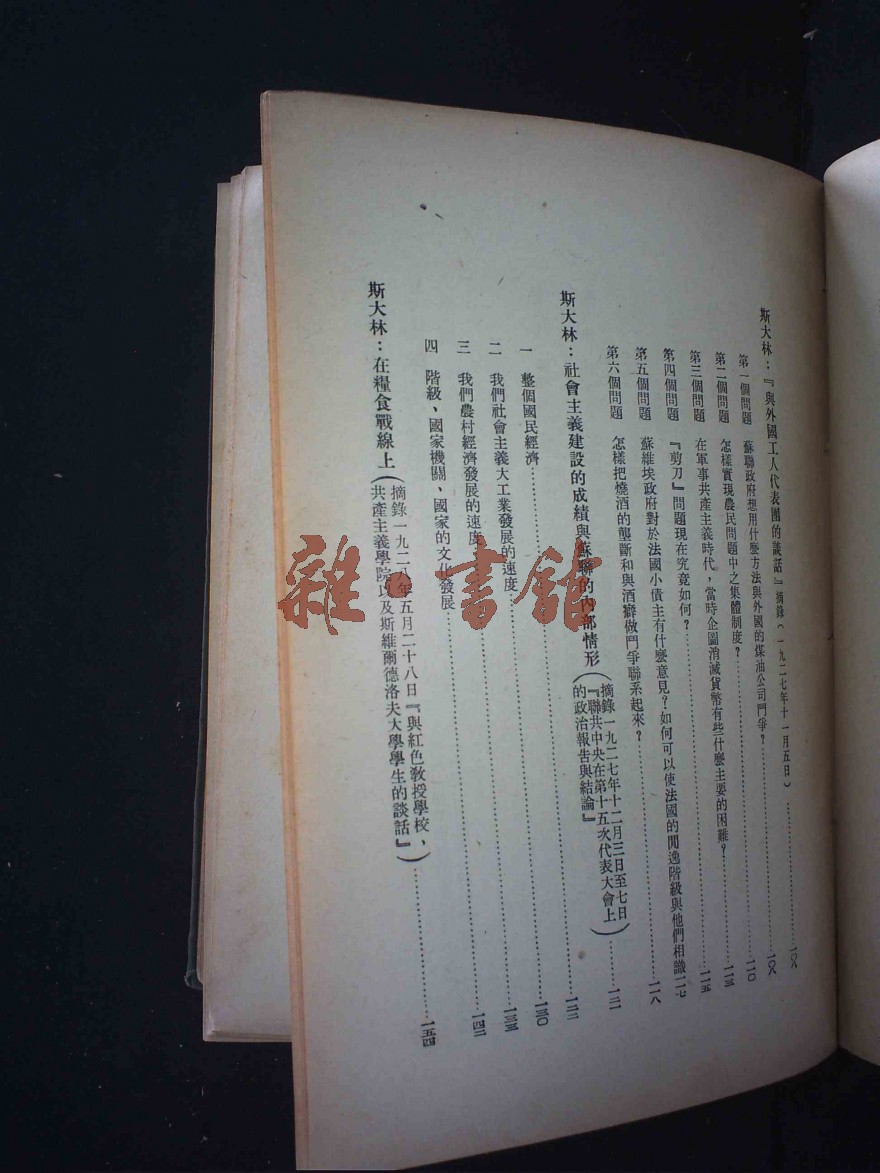 斯大林：『與外國工人代表團的談話』摘錄（一九二七年十一月五日）…………一〇八
第一個問題　蘇聯政府想用什麼方法與外國的煤油公司鬥爭？…………一〇八
第二個問題　怎樣實現農民問題中之集體制度？…………一一〇
第三個問題　在軍事共產主義時代，當時企圖消滅貨幣有些什麼主要的困難？…………一一五
第四個問題　『剪刀』問題現在究竟如何？…………
第五個問題　蘇維埃政府對於法國小債主有什麼意見？如何可以使法國的閒逸階級與他們相識一一七
第六個問題　怎樣把燒酒的壟斷和與酒癖做鬥爭聯系起來？…………一一八
斯大林：社會主義建設的成績與蘇聯的內部情形（摘錄一九二七年十二月三日至七日『聯共中央在第十五次代表大會上的政治報告與結論』）…………一二二
一　整個國民經濟…………
二　我們社會主義大工業發展的速度…………一三〇
三　我們農村經濟發展的速度…………一三五
四　階級、國家機關、國家的文化發展…………一四二
斯大林：在糧食戰線上（摘錄一九二八年五月二十八日『與紅色教授學校、共產主義學院以及斯維爾德洛夫大學學生的談話』）…………一五四
雜·書館